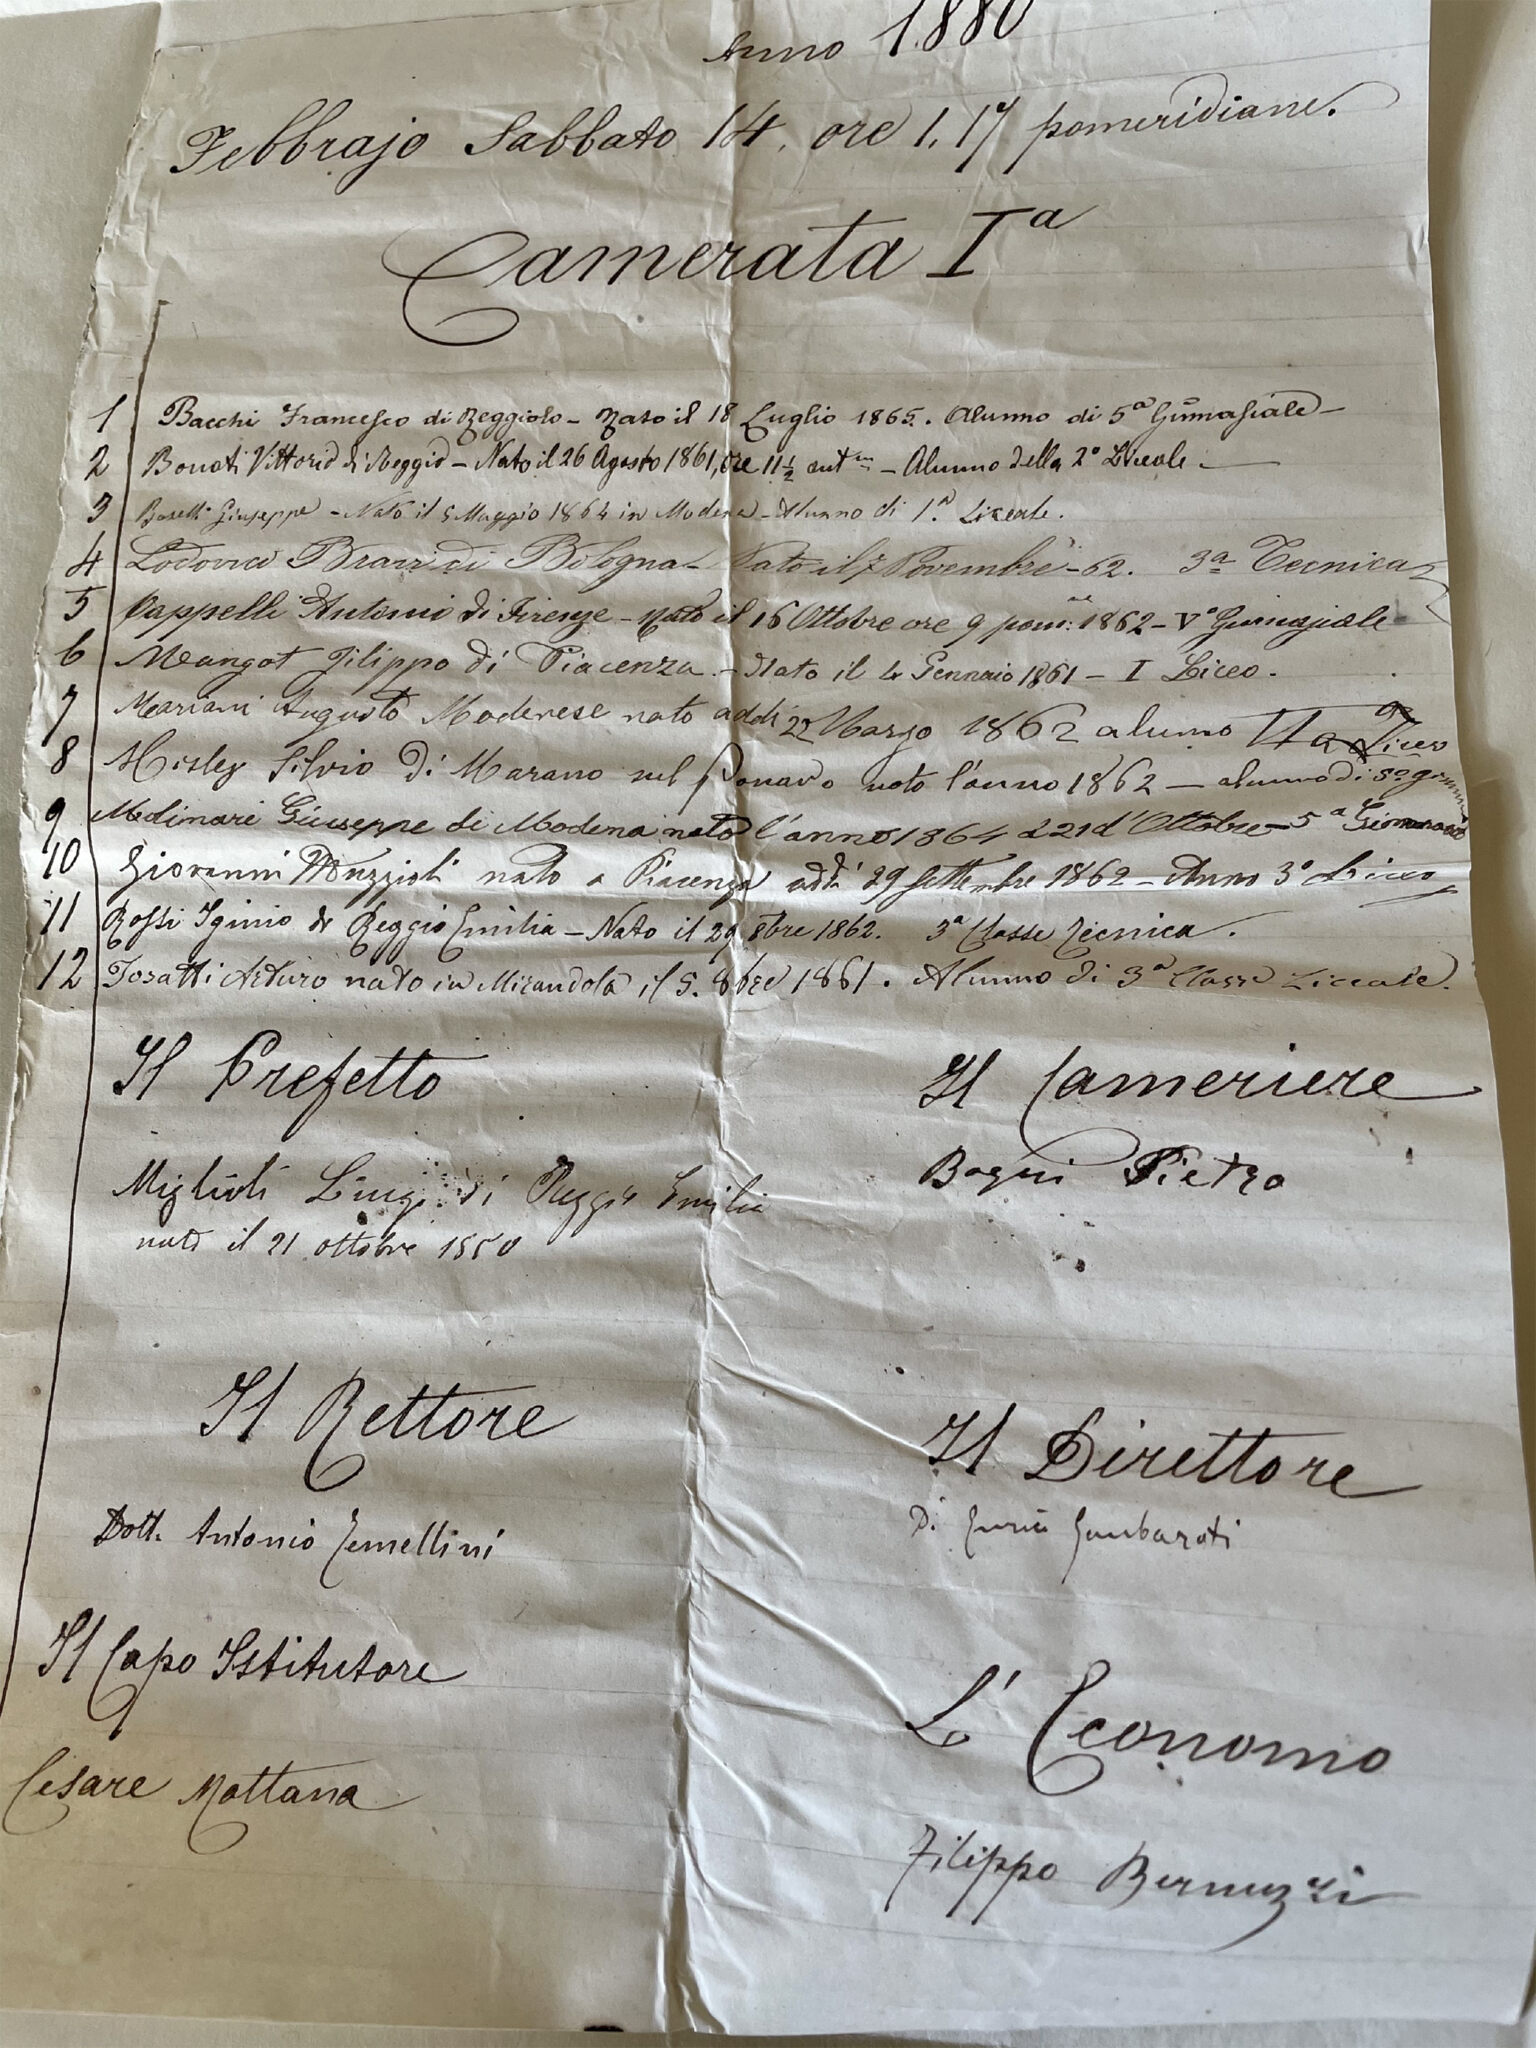 Anno 1880
Febbrajo Sabbato 14, ore 1,17 pomeridiane.
Camerata Iª
1 Bacchi Francesco di Reggiolo - Nato il 18 Luglio 1865. Alunno di 5ª Ginnasiale -
2 Bonati Vittorio di Reggio - Nato il 26 Agosto 1861, ore 11 1/2 antm - Alunno della 2ª Liceale -
3 Boselli Giuseppe - Nato il 5 Maggio 1864 in Modena - Alunno di 1ª Liceale.
4 Lodovico di Bologna - Nato il 7 Novembre - 62. 3ª Tecnica
5 Cappelli Antonio di Firenze - Nato il 16 Ottobre ore 9 pom: 1862 - Vª Ginnasiale
6 Mangot Filippo di Piacenza - Nato il 4 Gennaio 1861 - I Liceo.
7 Mariani Augusto Modenese nato addì 22 Marzo 1862 alunno Liceo
8 Misley Silvio di Marano sul Panaro nato l'anno 1862 - alunno di 5ª
9 Molinari Giuseppe di Modena nato l'anno 1864 21 d'Ottobre - 5ª
10 Giovanni nato a Piacenza addì 29 Settembre 1862 - Anno 3º Liceo
11 Rossi Iginio di Reggio Emilia - Nato il 29 8bre 1862. 3ª Classe Tecnica.
12 Tosatti Arturo nato in Mirandola il 5. 8bre 1861. Alunno di 3ª Classe Liceale.
Il Prefetto
Il Cameriere
Miglioli Luigi di Reggio Emilia
nato il 21 ottobre 1850
Bagni Pietro
Il Rettore
Il Direttore
Dott. Antonio Gemellini
Il Capo Istitutore
L'Economo
Cesare Mottana
Filippo Bernuzzi